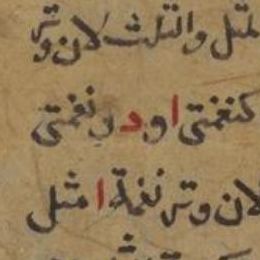 لمثل والثلث لان وتر
كنغمتى ا و د ونغمتى
لان وتر نغمة ا مثل